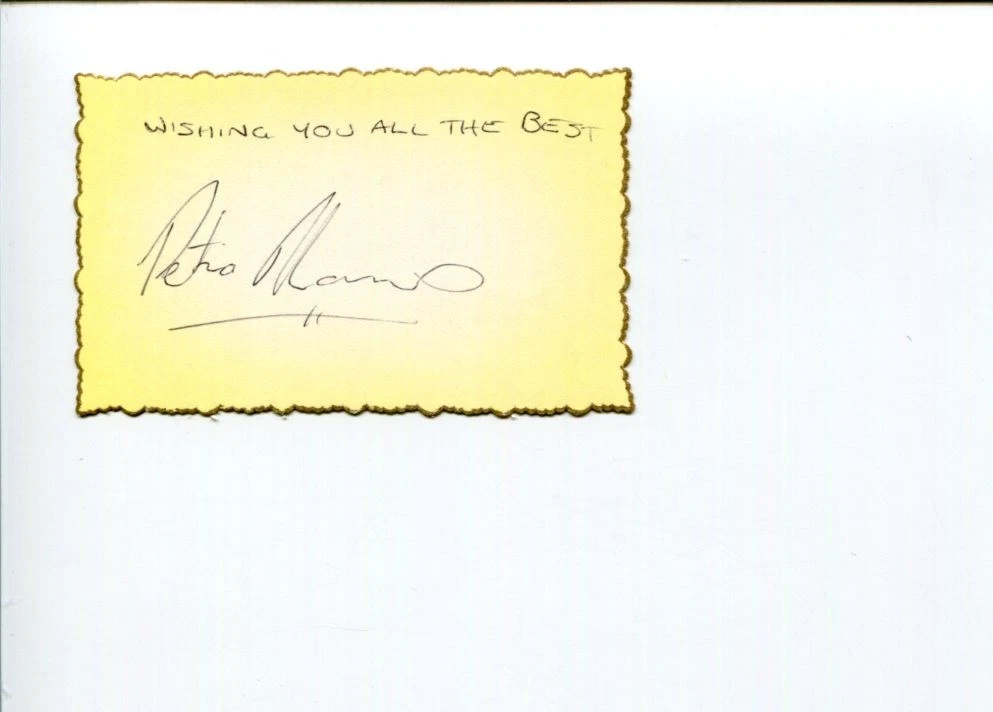 WISHING YOU ALL THE BEST
Petra